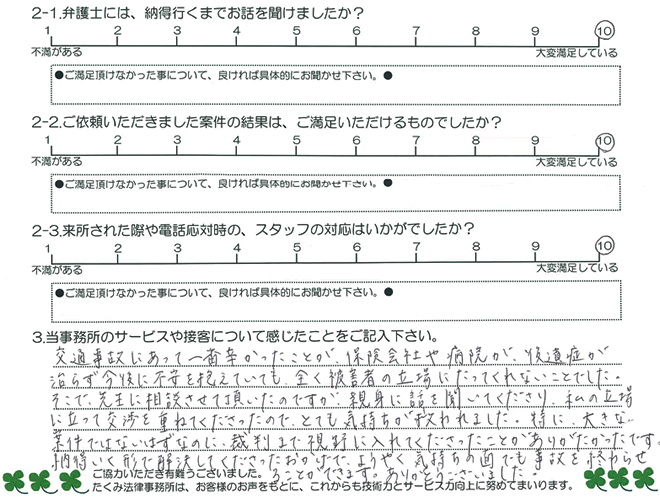 2-1.弁護士には、納得行くまでお話を聞けましたか？
1 2 3 4 5 6 7 8 9 10
不満がある 大変満足している
●ご満足頂けなかった事について、良ければ具体的にお聞かせ下さい。●
2-2.ご依頼いただきました案件の結果は、ご満足いただけるものでしたか？
1 2 3 4 5 6 7 8 9 10
不満がある 大変満足している
●ご満足頂けなかった事について、良ければ具体的にお聞かせ下さい。●
2-3.来所された際や電話応対時の、スタッフの対応はいかがでしたか？
1 2 3 4 5 6 7 8 9 10
不満がある 大変満足している
●ご満足頂けなかった事について、良ければ具体的にお聞かせ下さい。●
3.当事務所のサービスや接客について感じたことをご記入下さい。
交通事故にあって一番辛かったことが、保険会社や病院が、後遺症が
治らず今後に不安を抱えていても、全く被害者の立場にたってくれないことでした。
そこで、先生に相談させて頂いたのですが、親身に話を聞いてくださり、私の立場
に立って交渉を重ねてくださったので、とても気持ちが救われました。特に、大きな
案件ではないはずなのに、裁判まで視野に入れてくださったことがありがたかったです。
納得いく形で解決してくださったおかげで、ようやく気持ちの面でも事故を終わらせ
ることができます。ありがとうございました。
ご協力いただき有難うございました。
たくみ法律事務所は、お客様のお声をもとに、これからも技術力とサービス力向上に努めてまいります。